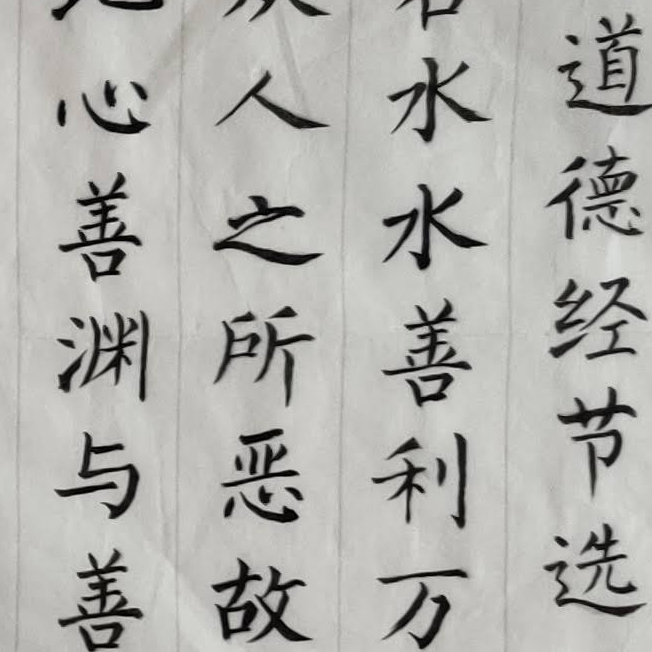 道德经节选
若水水善利万
众人之所恶故
地心善渊与善